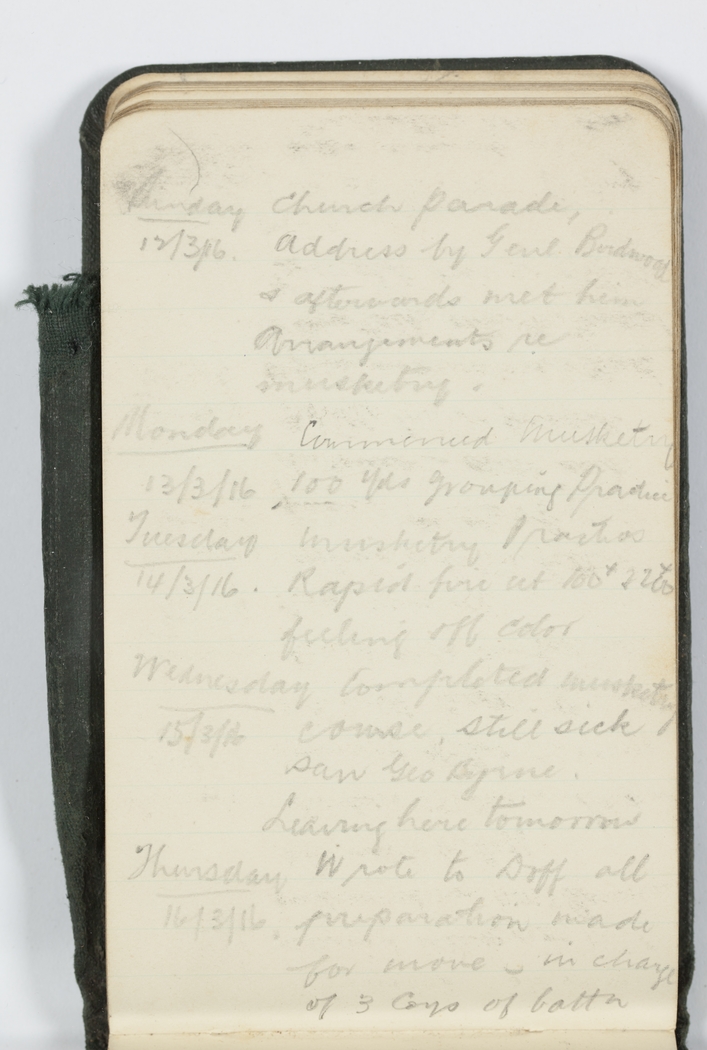 Sunday Church Parade,
12/3/16. Address by Genl Birdwood
& afterwards met him
Arrangements re
musketry.
Monday Commenced Musketry
13/3/16 100 yds grouping Practice
Tuesday Musketry Practice
14/3/16. Rapid fire at 100x &
feeling off color
Wednesday Completed musketry
15/3/16 course, still sick
saw Geo Byrne.
Leaving here tomorrow
Thursday Wrote to Doff all
16/3/16. preparation made
for move – in charge
of 3 Coys of battn